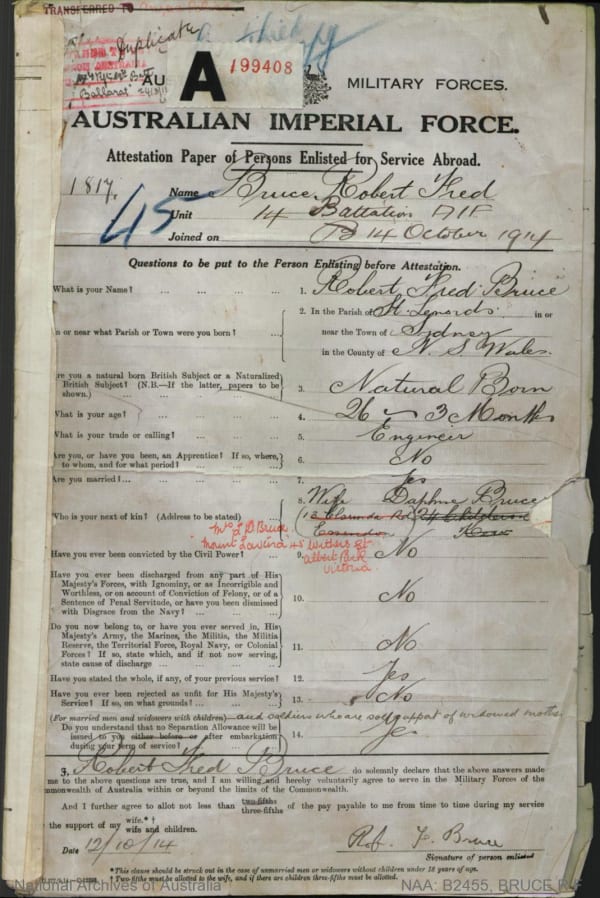 TRANSFERRED TO
Duplicate
AU
A 199408
MILITARY FORCES.
Ballarat
AUSTRALIAN IMPERIAL FORCE.
Attestation Paper of Persons Enlisted for Service Abroad.
1817.
Name Bruce, Robert Fred
45
Unit 14 Battalion AIF
Joined on 14 October 1914
Questions to be put to the Person Enlisting before Attestation.
What is your Name? ... 1. Robert Fred Bruce
2. In the Parish of St. Lenords in or
n or near what Parish or Town were you born? ... near the Town of Sydney
in the County of N. S. Wales.
re you a natural born British Subject or a Naturalized
British Subject? (N.B.—If the latter, papers to be
shown.) ... 3. Natural Born
What is your age? ... 4. 26 3 Months
What is your trade or calling? ... 5. Engineer
Are you, or have you been, an Apprentice? If so, where,
to whom, and for what period? ... 6. No
Are you married? ... 7. Yes
8. Wife Daphne Bruce
Who is your next of kin? (Address to be stated) ...
Essendon Kew
Mrs D Bruce
"Mount Lavina" 45 Withers St
Albert Park
Victoria
Have you ever been convicted by the Civil Power? ... 9. No
Have you ever been discharged from any part of His
Majesty's Forces, with Ignominy, or as Incorrigible and
Worthless, or on account of Conviction of Felony, or of a
Sentence of Penal Servitude, or have you been dismissed
with Disgrace from the Navy? ... 10. No
Do you now belong to, or have you ever served in, His
Majesty's Army, the Marines, the Militia, the Militia
Reserve, the Territorial Force, Royal Navy, or Colonial
Forces? If so, state which, and if not now serving,
state cause of discharge ... 11. No
Have you stated the whole, if any, of your previous service? 12. Yes
Have you ever been rejected as unfit for His Majesty's
Service? If so, on what grounds? ... 13. No
(For married men and widowers with children) and soldiers who are sole support of widowed mother
Do you understand that no Separation Allowance will be
issued to you either before or after embarkation
during your term of service? ... 14. Yes
I, Robert Fred Bruce do solemnly declare that the above answers made
me to the above questions are true, and I am willing and hereby voluntarily agree to serve in the Military Forces of the
mmonwealth of Australia within or beyond the limits of the Commonwealth.
And I further agree to allot not less than two-fifths three-fifths of the pay payable to me from time to time during my service
the support of my wife.*† wife and children.
Date 12/10/14
Rob. F. Bruce
Signature of person enlisted
*This clause should be struck out in the case of unmarried men or widowers without children under 18 years of age.
† Two-fifths must be allotted to the wife, and if there are children three-fifths must be allotted.
National Archives of Australia
NAA: B2455, BRUCE R F